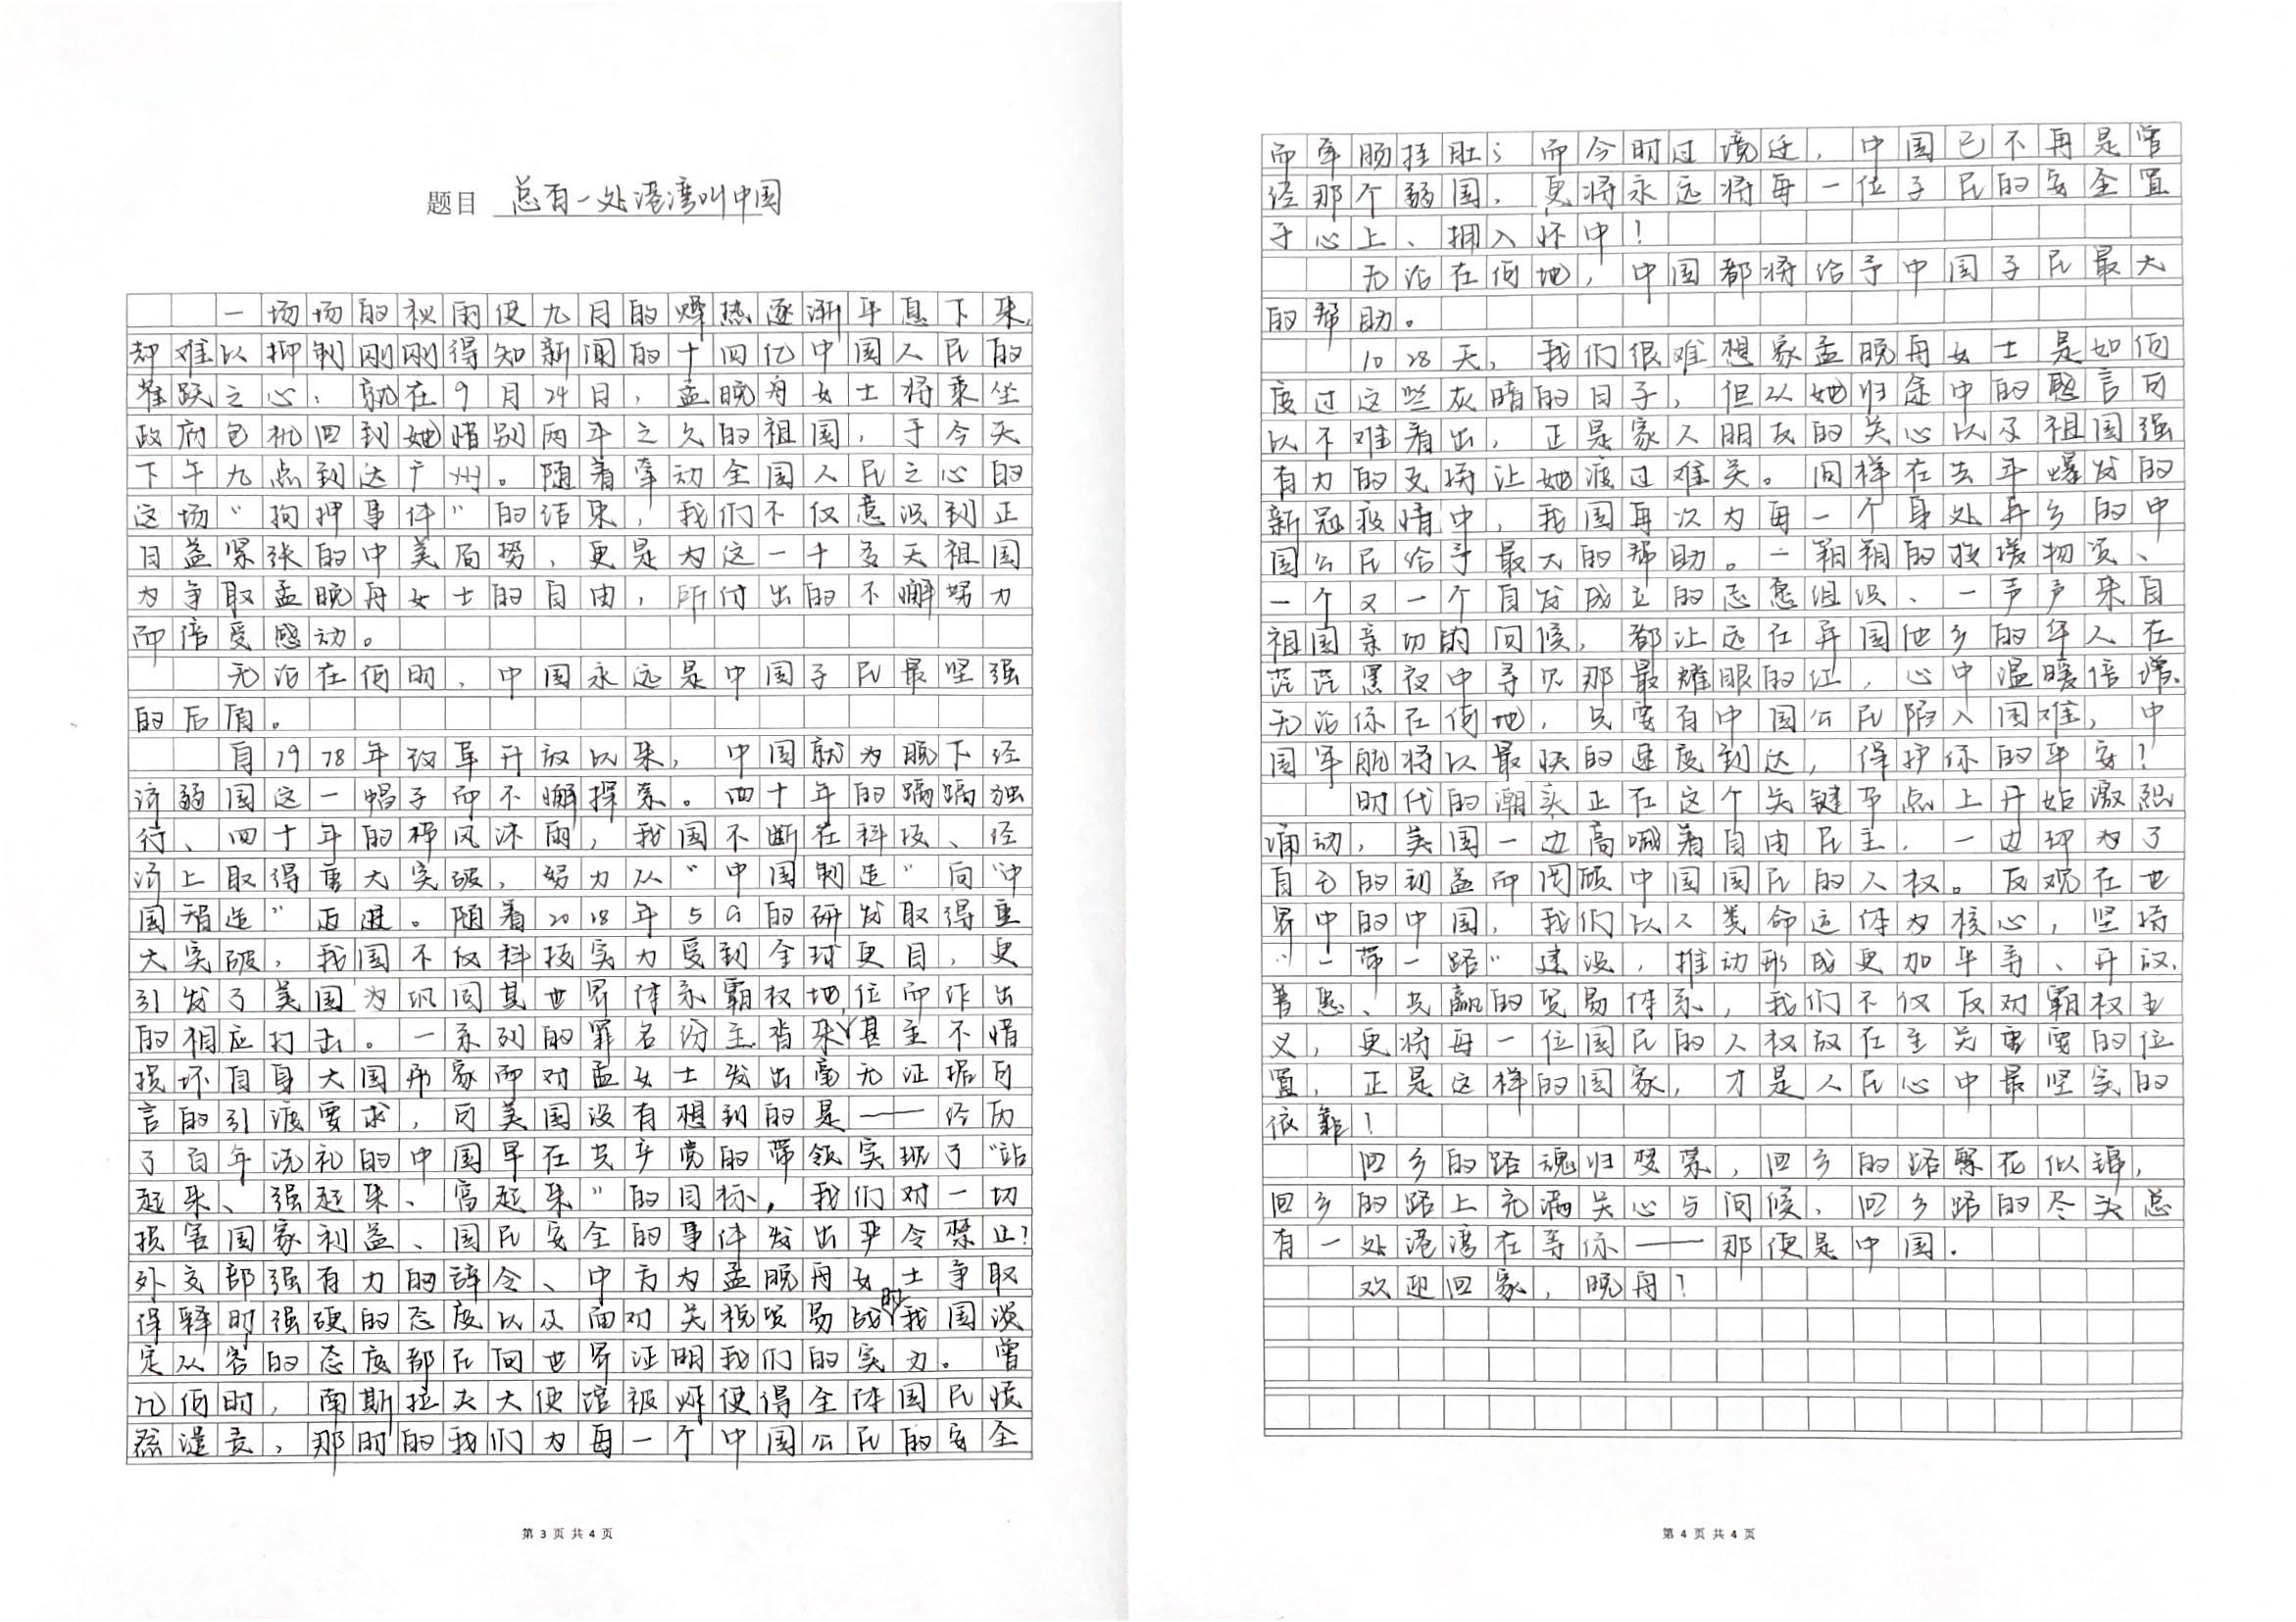 题目 总有一处港湾叫中国
一场场的秋雨使九月的燥热逐渐平息下来,
却难以抑制刚刚得知新闻的十四亿中国人民的
雀跃之心，就在9月24日，孟晚舟女士将乘坐
政府包机回到她惜别两年之久的祖国，于今天
下午九点到达广州。随着牵动全国人民之心的
这场“拘押事件”的结束，我们不仅意识到正
日益紧张的中美局势，更是为这一千多天祖国
为争取孟晚舟女士的自由，所付出的不懈努力
而倍受感动。
无论在何时，中国永远是中国子民最坚强
的后盾。
自1978年改革开放以来，中国就为脱下经
济弱国这一帽子而不懈探索。四十年的踽踽独
行、四十年的栉风沐雨，我国不断在科技、经
济上取得重大突破，努力从“中国制造”向“中
国智造”迈进。随着2018年5G的研发取得重
大突破，我国不仅科技实力受到全球更目，更
引发了美国为巩固其世界体系霸权地位而作出
的相应打击。一系列的罪名纷至沓来，甚至不惜
损坏自身大国形象而对孟女士发出毫无证据可
言的引渡要求，可美国没有想到的是——经历
了百年洗礼的中国早在共产党的带领实现了“站
起来、强起来、富起来”的目标，我们对一切
损害国家利益、国民安全的事件发出严令禁止！
外交部强有力的辞令、中方为孟晚舟女士争取
保释时强硬的态度以及面对关税贸易战时我国淡
定从容的态度都在向世界证明我们的实力。曾
几何时，南斯拉夫大使馆被炸使得全体国民愤
怒谴责，那时的我们为每一个中国公民的安全
而牵肠挂肚；而今时过境迁，中国已不再是曾
经那个弱国，更将永远将每一位子民的安全置
于心上、拥入怀中！
无论在何地，中国都将给予中国子民最大
的帮助。
1028天，我们很难想象孟晚舟女士是如何
度过这些灰暗的日子，但从她归途中的感言可
以不难看出，正是家人朋友的关心以及祖国强
有力的支持让她渡过难关。同样在去年爆发的
新冠疫情中，我国再次为每一个身处异乡的中
国公民给予最大的帮助。一箱箱的救援物资、
一个又一个自发成立的志愿组织、一声声来自
祖国亲切的问候，都让远在异国他乡的华人在
茫茫黑夜中寻见那最耀眼的红，心中温暖倍增。
无论你在何地，只要有中国公民陷入困难，中
国军舰将以最快的速度到达，保护你的平安！
时代的潮头正在这个关键节点上开始激烈
涌动，美国一边高喊着自由民主，一边却为了
自己的利益而罔顾中国国民的人权。反观在世
界中的中国，我们以人类命运体为核心，坚持
“一带一路”建设，推动形成更加平等、开放、
普惠、共赢的贸易体系，我们不仅反对霸权主
义，更将每一位国民的人权放在至关重要的位
置，正是这样的国家，才是人民心中最坚实的
依靠！
回乡的路魂归梦萦，回乡的路繁花似锦，
回乡的路上充满关心与问候，回乡路的尽头总
有一处港湾在等你——那便是中国.
欢迎回家，晚舟！
第3页共4页
第4页共4页